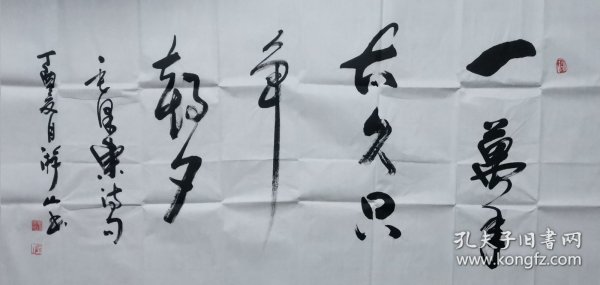 一萬年
太久只
争
朝夕
毛泽東诗句
丁酉夏月山书
孔夫子旧书网
www.kongfz.com